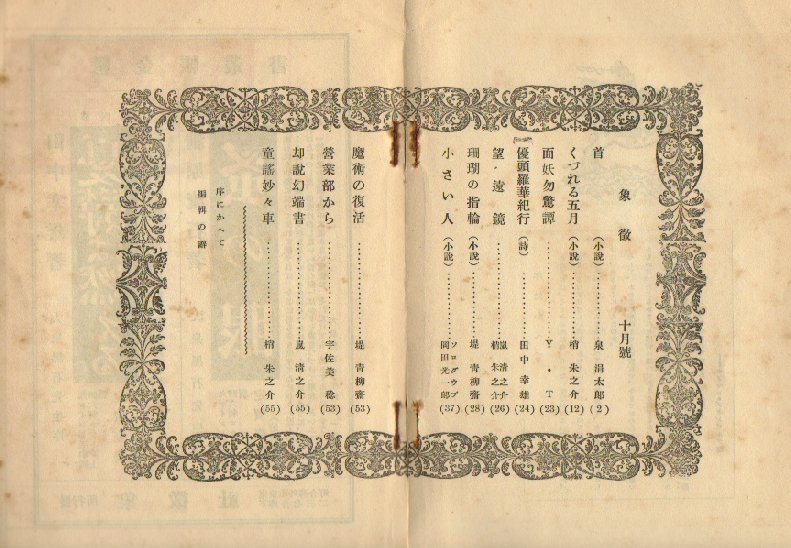 象徵 十月號
首 (小說)……………泉 涓太郎(2)
くづれる五月 (小說)……………梢 朱之介(12)
面妖勿驚譚……………Y・T(23)
優頭羅華紀行 (詩)……………田中幸雄(24)
望・遠鏡……………嵐 淸之介 梢 朱之介(26)
珊瑚の指輪 (小說)……………堤 靑柳齋(28)
小さい人 (小說)……………ソログウブ 岡田光一郎(37)
魔術の復活……………堤 靑柳齋(53)
營業部から……………宇佐美 稔(53)
却說幻端書……………嵐 淸之介(55)
童謠妙々車……………梢 朱之介(55)
序にかへて
編輯の辭